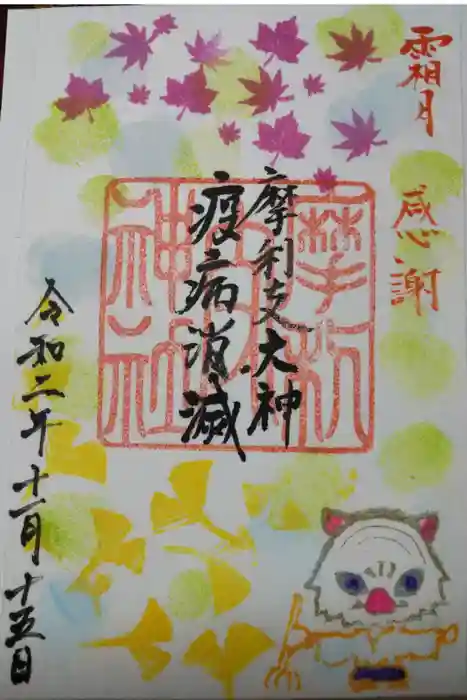 霜月 感謝
摩利支大神
疫病消滅
令和二年十一月十五日